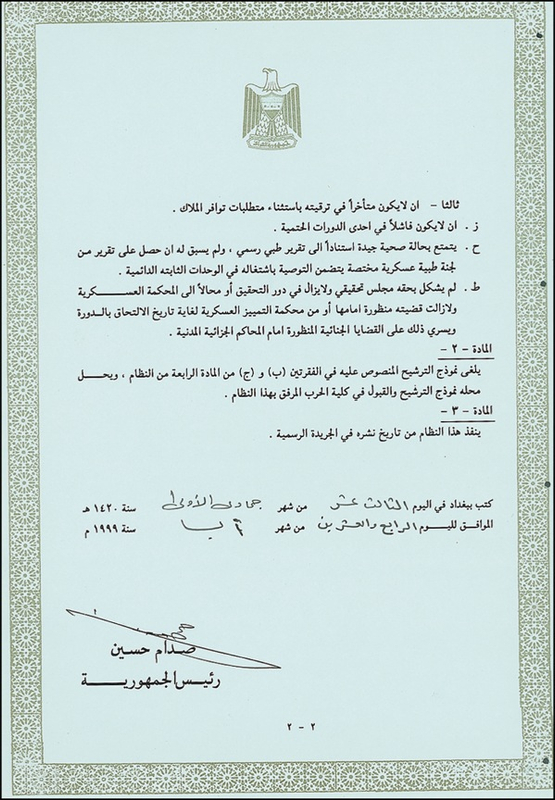 ثالثا - ان لايكون متأخراً في ترقيته باستثناء متطلبات توافر الملاك .
ز . ان لايكون فاشلاً في احدى الدورات الحتمية .
ح . يتمتع بحالة صحية جيدة استناداً الى تقرير طبي رسمي ، ولم يسبق له ان حصل على تقرير من
لجنة طبية عسكرية مختصة يتضمن التوصية باشتغاله في الوحدات الثابته الدائمية .
ط . لم يشكل بحقه مجلس تحقيقي ولايزال في دور التحقيق أو محالاً الى المحكمة العسكرية
ولازالت قضيته منظورة امامها أو من محكمة التمييز العسكرية لغاية تاريخ الالتحاق بالدورة
ويسري ذلك على القضايا الجنائية المنظورة امام المحاكم الجزائية المدنية .
المادة - ٢ -
يلغى نموذج الترشيح المنصوص عليه في الفقرتين (ب) و (ج) من المادة الرابعة من النظام ، ويحل
محله نموذج الترشيح والقبول في كلية الحرب المرفق بهذا النظام .
المادة - ٣ -
ينفذ هذا النظام من تاريخ نشره في الجريدة الرسمية .
كتب ببغداد في اليوم الثالث عشر من شهر جمادى الأولى سنة ١٤٢٠ هـ
الموافق لليوم الرابع والعشرين من شهر آب سنة ١٩٩٩ م
صدام حسين
رئيس الجمهورية
٢ - ٢